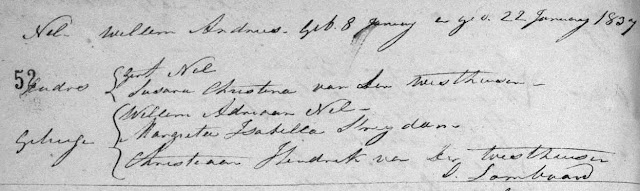 Nel. Willem Andries. Geb. 8 January en ged. 22 January 1837
52
Ouders { Gert Nel
Susara Christina van der Westhuisen
{ Willem Adriaan Nel
Getuige Margreta Isabella Strydom
Christiaan Hendrik van der Westhuisen
D. Lombaard